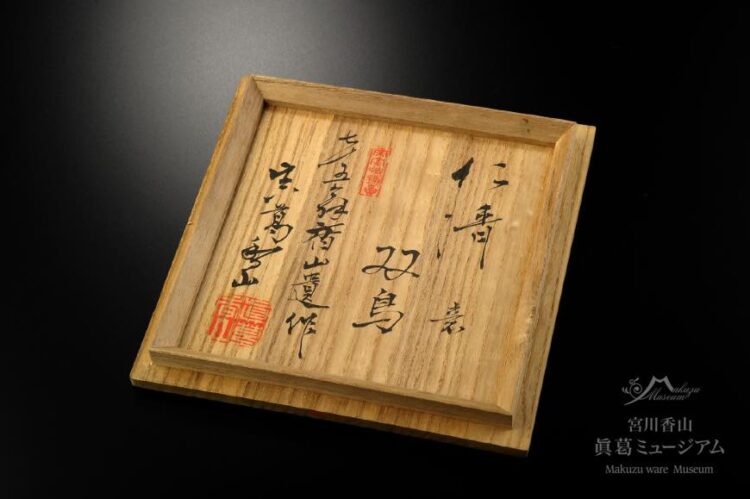 仁清意
双鳥
七十五齢香山遺作
真葛香山
Makuzu
Museum
宮川香山
眞葛ミュージアム
Makuzu ware Museum